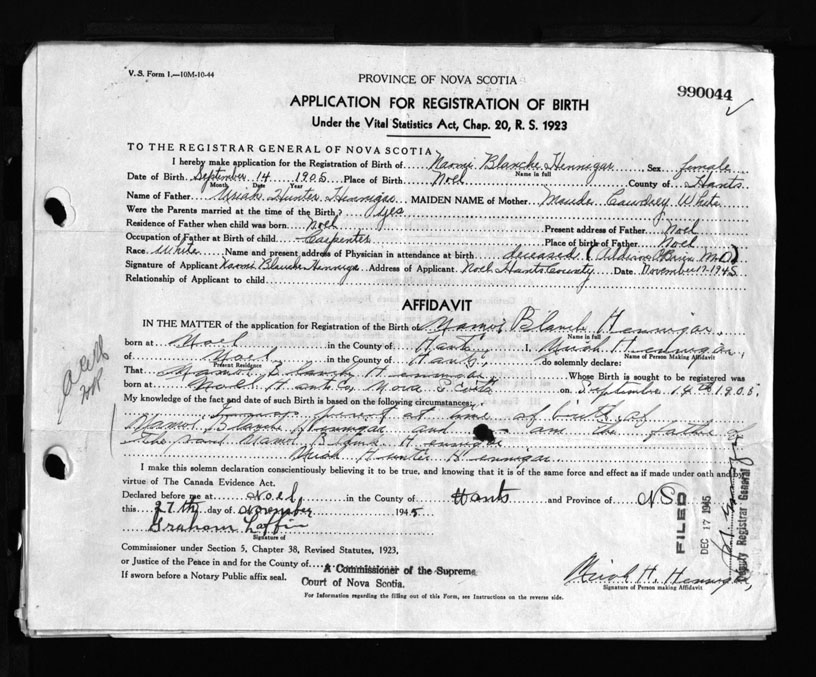 V. S. Form 1.—10M-10-44
PROVINCE OF NOVA SCOTIA
990044
APPLICATION FOR REGISTRATION OF BIRTH
Under the Vital Statistics Act, Chap. 20, R. S. 1923
TO THE REGISTRAR GENERAL OF NOVA SCOTIA
I hereby make application for the Registration of Birth of Naomi Blanche Hennigar Sex female
Name in full
Date of Birth September 14 1905 Place of Birth Noel County of Hants
Month Date Year
Name of Father Uriah Hunter Hennigar MAIDEN NAME of Mother Maude White
Were the Parents married at the time of the Birth? yes
Residence of Father when child was born Noel Present address of Father Noel
Occupation of Father at Birth of child Carpenter Place of birth of Father Noel
Race White Name and present address of Physician in attendance at birth deceased (O'Brien M.D)
Signature of Applicant Naomi Blanche Hennigar Address of Applicant Noel Hants County Date November 17-1945
Relationship of Applicant to child
AFFIDAVIT
IN THE MATTER of the application for Registration of the Birth of Naomi Blanch Hennigar
Name in full
born at Noel in the County of Hants I, Uriah Hennigar,
Name of Person Making Affidavit
of Noel in the County of Hants, do solemnly declare:
Present Residence
That Naomi Blanch Hennigar Whose Birth is sought to be registered was
born at Noel Hants Co, Nova Scotia on September 14th 1905,
My knowledge of the fact and date of such Birth is based on the following circumstances:
I was present at time of birth of
Naomi Blanch Hennigar and am the father of
the said Naomi Blanch Hennigar
Uriah Hunter Hennigar
I make this solemn declaration conscientiously believing it to be true, and knowing that it is of the same force and effect as if made under oath and by
virtue of The Canada Evidence Act.
Declared before me at Noel, in the County of Hants and Province of N S
this 27th day of November 1945
Graham Laffin
Signature of
Commissioner under Section 5, Chapter 38, Revised Statutes, 1923,
or Justice of the Peace in and for the County of A Commissioner of the Supreme
If sworn before a Notary Public affix seal. Court of Nova Scotia.
Uriah H. Hennigar,
Signature of Person making Affidavit
For Information regarding the filling out of this Form, see Instructions on the reverse side.
FILED
DEC 17 1945
Deputy Registrar General